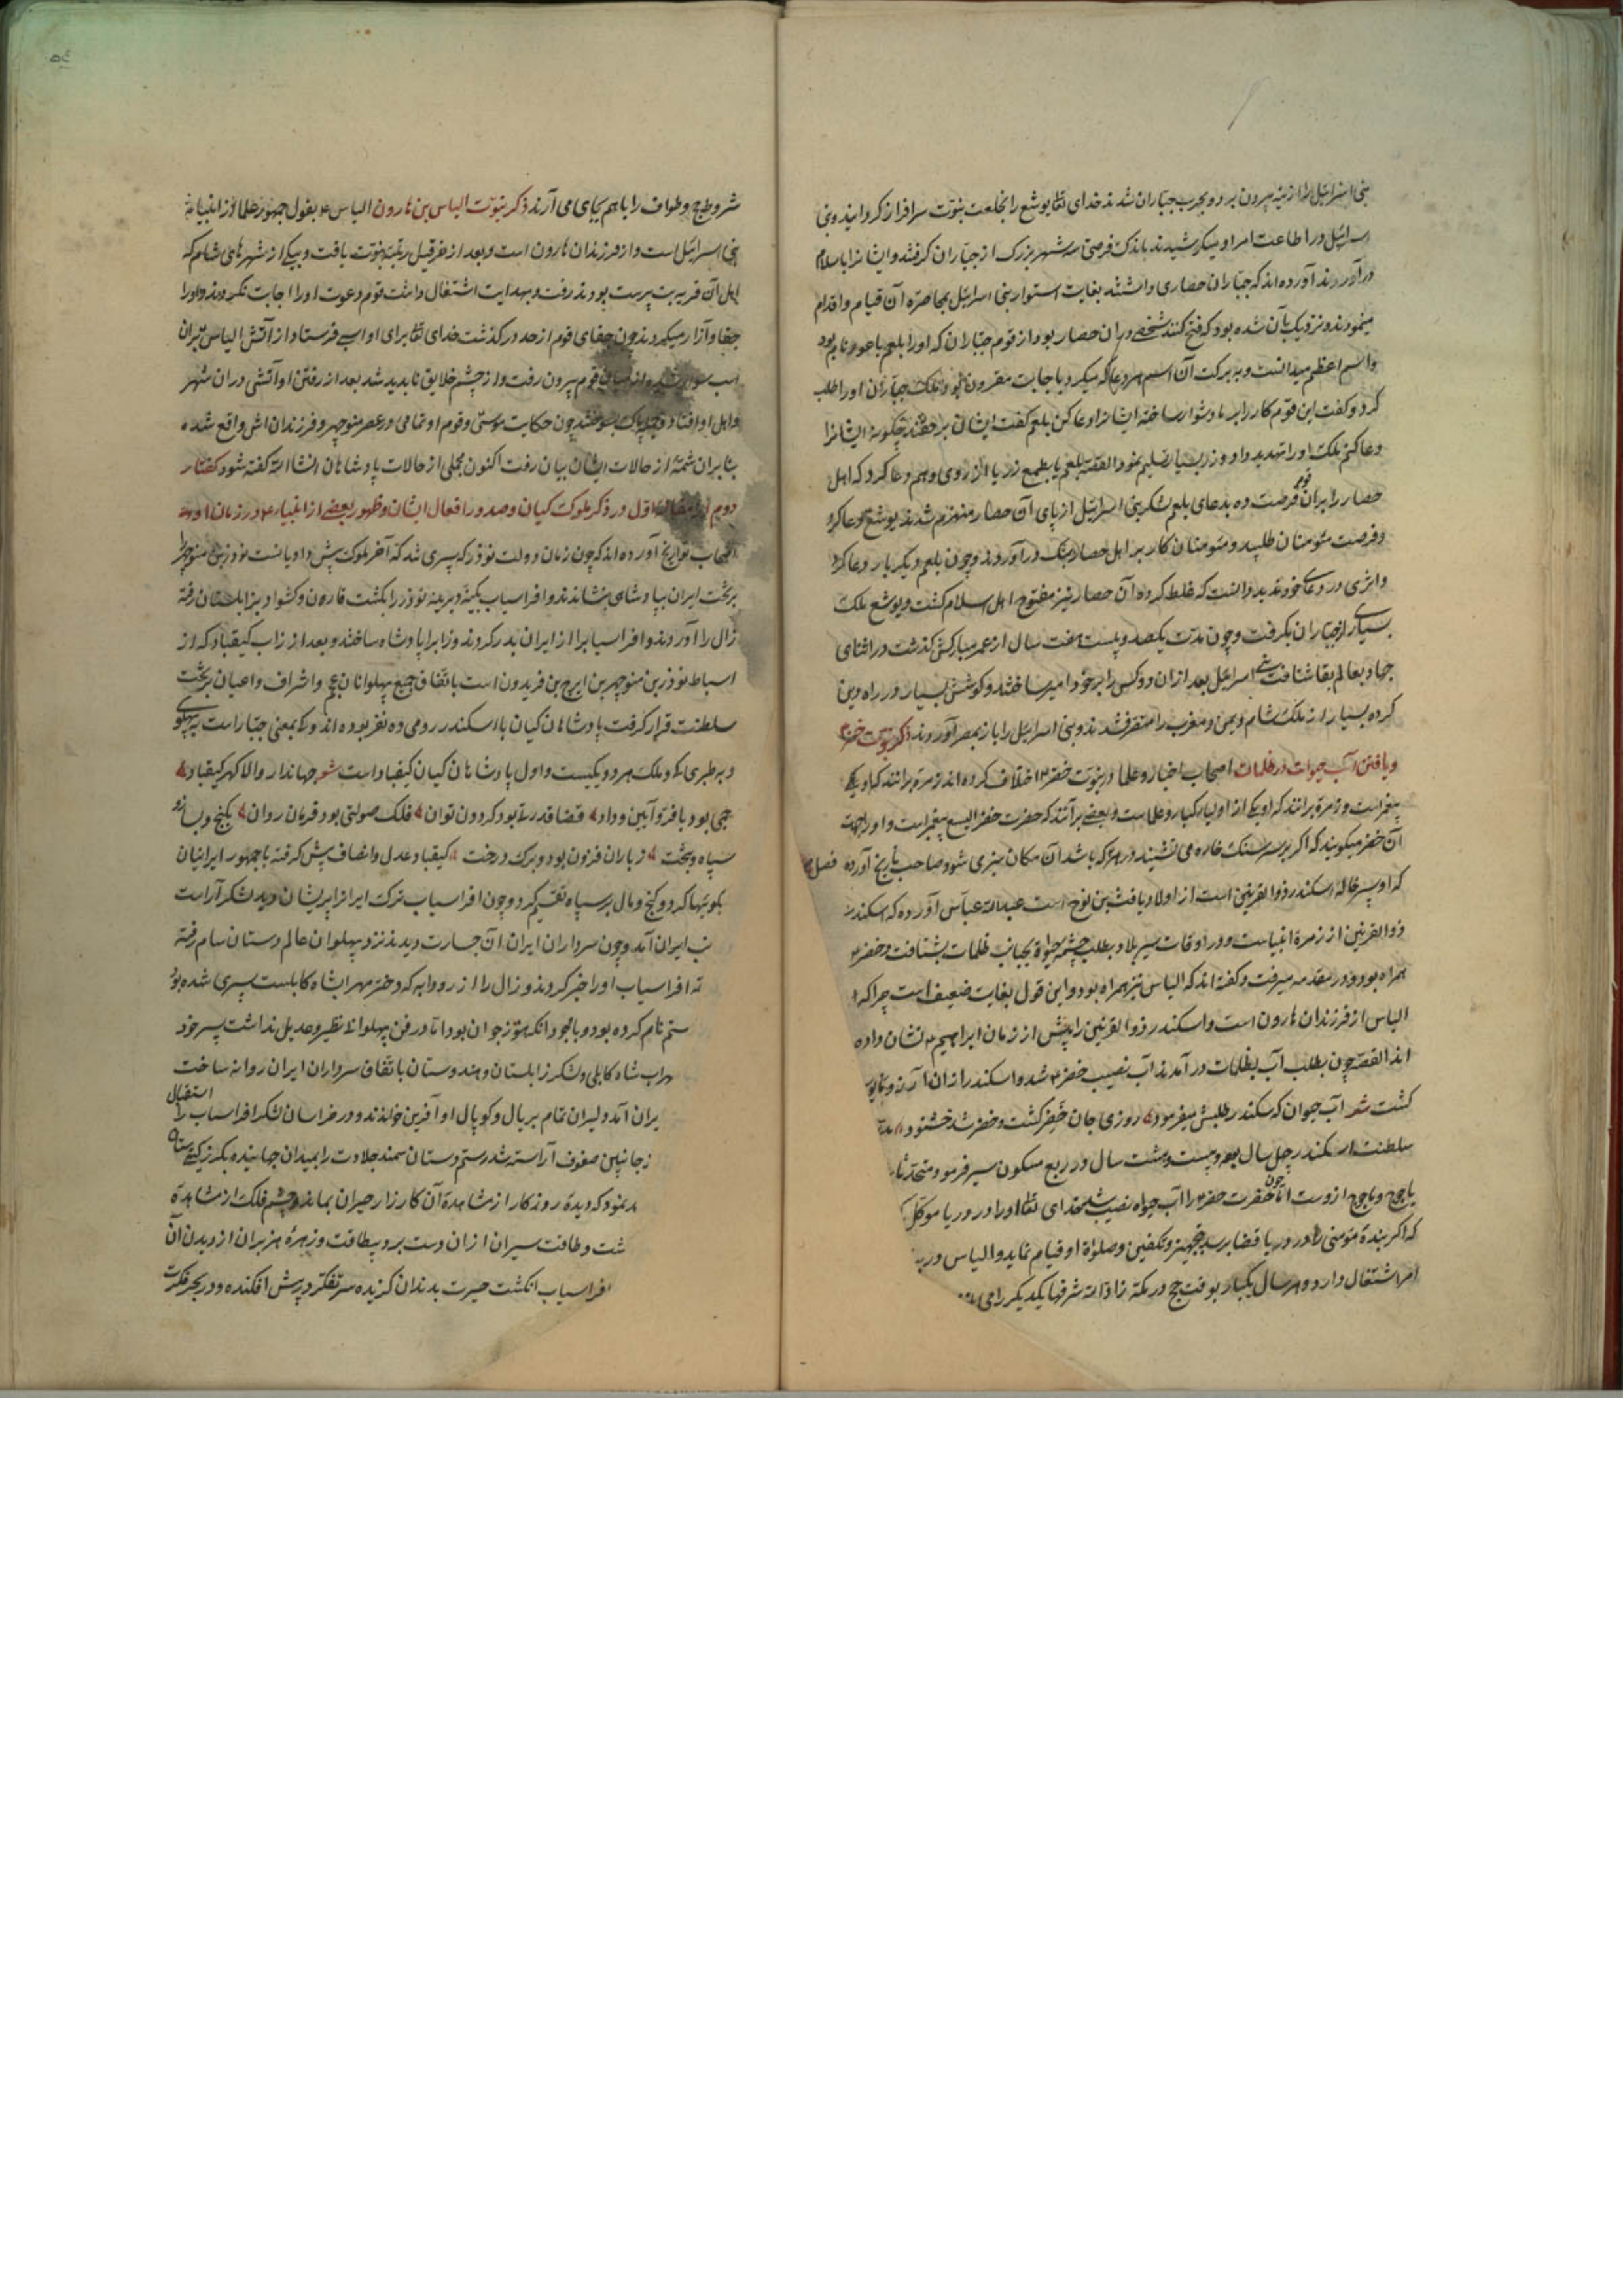 بنی اسرائیل را از تیه بیرون برد و بحرب جباران شدند خدای تعا یوشع را بخلعت نبوت سرافراز کردانید و بنی
اسرائیل در اطاعت امر او میکوشیدند باندک فرصتی سه شهر بزرک از جباران کرفتند و ایشانرا باسلام
درآوردند آورده اند که جباران حصاری داشتند بغایت استوار بنی اسرائیل بمحاصره آن قیام و اقدام
مینمودند و نزدیک بآن شده بود که فتح کنند شخصی در ان حصار بود از قوم جباران که او را بلعم باعور نام بود
و اسم اعظم میدانست و به برکت آن اسم هر دعا که میکرد باجابت مقرون بود ملک جباران او را طلب
کرد و کفت این قوم کار را بر ما دشوار ساخته ایشانرا دعا کن بلعم کفت ایشان بر حقند چکونه ایشانرا
دعا کنم ملک او را تهدید داد و زر بسیار تسلیم نمود القصه بلعم یا بطمع زر یا از روی وهم دعا کرد که اهل
حصار را بر ان قوم فرصت ده بدعای بلعم لشکر بنی اسرائیل از پای آن حصار منهزم شدند یوشع دعا کرد
و فرصت مؤمنان طلبید و مؤمنان کار بر اهل حصار تنک درآوردند و چون بلعم دیکر بار دعا کرد
و اثری در دعای خود ندید دانست که غلط کرده آن حصار نیز مفتوح اهل اسلام کشت و یوشع ملک
بسیاری از جباران بکرفت و چون مدت یکصد و بیست و هفت سال از عمر مبارکش کذشت در اثنای
جهاد بعالم بقا شتافت بنی اسرائیل بعد ازان دو کس را بر خود امیر ساختند و کوشش بسیار در راه دین
کرده بسیار از ملک شام و یمن و مغرب را متصرف شدند و بنی اسرائیل را باز بمصر آوردند ذکر نبوت خضر
و یافتن آب حیوات در ظلمات اصحاب اخبار و علما در نبوت خضر اختلاف کرده اند زمره برانند که او یکی
پیغمبر است و زمره برانند که او یکی از اولیاء کبار و علماست و بعضی برآنند که حضرت خضر الیسع پیغمبر است و او را بجهت
آن خضر میکویند که اکر بر سر سنک خاره می نشیند در هر جا که باشد آن مکان سبزمی شود صاحب تاریخ آورده
که او پسر خاله اسکندر ذوالقرنین است از اولاد یافث بن نوح است عبدالله عباس آورده که اسکندر
ذوالقرنین از زمرۀ انبیاست و در اوقات سیر بلاد بطلب چشمه حیوة بجانب ظلمات بشتافت و خضر
همراه بود و در مقدمه میرفت و کفته اند که الیاس نیز همراه بود و این قول بغایت ضعیف است چرا که
الیاس از فرزندان هارون است و اسکندر ذوالقرنین را پیش از زمان ابراهیم نشان داده
اند القصه چون بطلب آب بظلمات درآمدند آب نصیب خضر شد و اسکندر از ان
کشت شعر آب حیوان که سکندر طلبش میفرمود روزی جان خضر کشت و خضر شد خشنود
سلطنت اسکندر چهل سال بود و بیست و هشت سال در ربع مسکون سیر فرمود
یاجوج و ماجوج ازوست اما چون حضرت خضر را آب حیواه نصیب شد خدای تعا او را در دریا موکل
که اکر بندۀ مؤمنی را در دریا قضا برسد بتجهیز و تکفین و صلواة او قیام نماید و الیاس در
امر اشتغال دارد و هر سال یکبار بوقت حج در مکه زادالله شرفها یکدیکر را می
شروط حج و طواف را با هم بجای می آرند ذکر نبوت الیاس بن هارون الیاس بقول جمهور علما از انبیاء
بنی اسرائیل است و از فرزندان هارون است و بعد از خرقیل برتبۀ نبوت یافت و بیکی از شهرهای شام که
اهل آن قریه بت پرست بودند رفت و بهدایت اشتغال داشت قوم دعوت او را اجابت نکردند و او را
جفا و آزار میکردند چون جفای قوم از حد درکذشت خدای تعا برای او اسبی فرستاد از آتش الیاس بران
اسب سوار شده از میان قوم بیرون رفت و از چشم خلایق ناپدید شد بعد از رفتن او آتشی دران شهر
و اهل او افتاد و پاک بسوختند چون حکایت موسی و قوم او تمامی در عصر منوچهر و فرزندان اش واقع شده
بنابران شمۀ از حالات ایشان بیان رفت اکنون مجملی از حالات پادشاهان انشاالله کفته شود کفتار
دویم از مقاله اول در ذکر ملوک کیان و صدور افعال ایشان و ظهور بعضی از انبیاء در زمان
اصحاب تواریخ آورده اند که چون زمان دولت نوذر که پسری شد که آخر ملوک پیش دادیانست نوذر بن منوچهر را
بر تخت ایران بپادشاهی نشاندند و افراسیاب بکینه دیرینه نوذر را بکشت قارن و کشواد بزابلستان رفته
زال را آوردند و افراسیاب را از ایران بدر کردند و زاب را پادشاه ساختند و بعد از زاب کیقباد که از
اسباط نوذر بن منوچهر بن ایرج بن فریدون است باتفاق جمیع پهلوانان عجم و اشراف و اعیان بر تخت
سلطنت قرار کرفت پادشاهان کیان با اسکندر رومی ده نفر بوده اند و کی بمعنی جبار است به پهلوی
و به طبری کی و ملک هر دو یکیست و اول پادشاهان کیان کیقباد است شعر جهاندار والا کهر کیقباد
جمی بود با فر و آیین و داد قضا قدرتی بود کردون توان فلک صولتی بود فرمان روان بکنج و بساز
سپاه و بتخت ز باران فزون بود و برک درخت کیقباد عدل و انصاف پیش کرفته با جمهور ایرانیان
نکوییها کرد و کنج و مال بر سپاه تقسیم کرد و چون افراسیاب ترک ایرانرا پریشان دید لشکر آراست
ایران آمد و چون سرداران ایران آن جسارت دیدند نزد پهلوان عالم دستان سام رفته
افراسیاب او را خبر کردند و زال را از رودابه که دختر مهراب شاه کابلست پسری شده بود
ستم نام کرده بود و با وجود انکه هنوز جوان بود اما در فن پهلوانی نظیر و عدیل نداشت پسر خود
مهراب شاه کابلی و لشکر زابلستان و هندوستان باتفاق سرداران ایران روانه ساخت
ایران آمد دلیران تمام بر یال و کوپال او آفرین خواندند و در خراسان لشکر افراسیاب را استقبال
ز جانبین صفوف آراسته شد رستم دستان سمند جلادت را بمیدان جهانیده
نمود که دیدۀ روزکار از مشاهدۀ آن کارزار حیران بماند و چشم فلک از مشاهدۀ
و طاقت سیران ازان دست برد بیطاقت و زهرۀ هزبران از دیدن آن
افراسیاب انکشت حیرت بدندان کزیده سر تفکر در پیش افکنده و در بحر فکرت